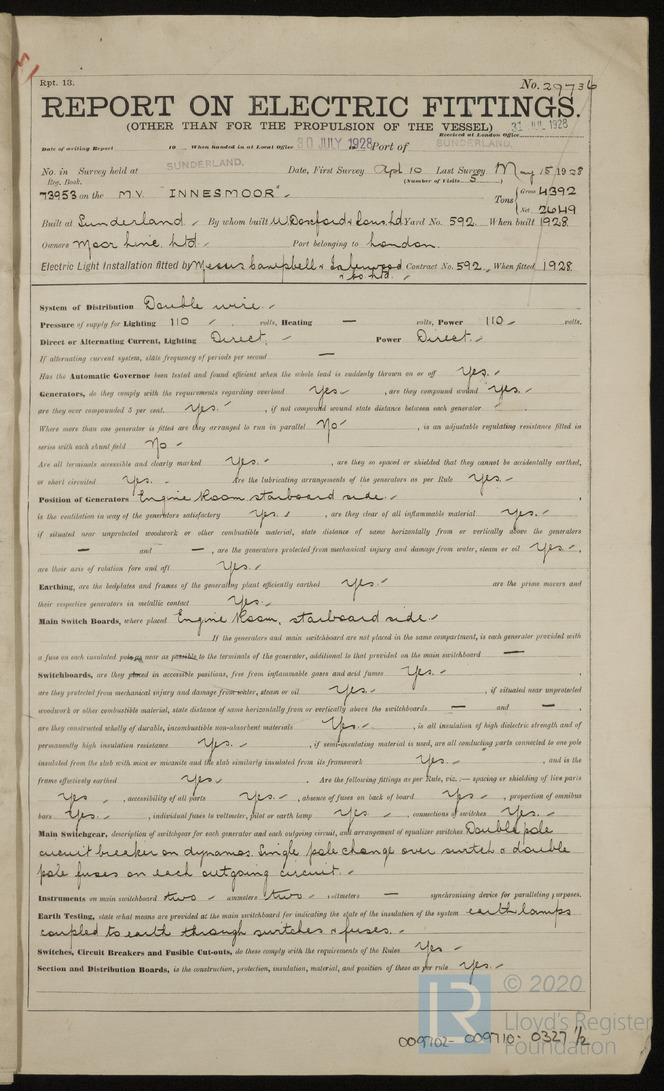 Rpt. 13.
No. 29736
REPORT ON ELECTRIC FITTINGS.
(OTHER THAN FOR THE PROPULSION OF THE VESSEL)
31 JUL 1928
Received at London Office
Date of writing Report 19 When handed in at Local Office 30 JULY 1928 Port of SUNDERLAND.
No. in Survey held at SUNDERLAND. Date, First Survey Apl 10 Last Survey May 15 1928
Reg. Book. (Number of Visits 5 )
73953 on the M.V. "INNESMOOR" Tons { Gross 4392
Net 2649
Built at Sunderland. By whom built W. Doxford & Sons. Ltd Yard No. 592. When built 1928.
Owners Moor Line. Ltd. Port belonging to London.
Electric Light Installation fitted by Messrs Campbell & Isherwood & Co. Ltd. Contract No. 592. When fitted 1928
System of Distribution Double wire.
Pressure of supply for Lighting 110 volts, Heating — volts, Power 110 volts.
Direct or Alternating Current, Lighting Direct. Power Direct.
If alternating current system, state frequency of periods per second —
Has the Automatic Governor been tested and found efficient when the whole load is suddenly thrown on or off Yes.
Generators, do they comply with the requirements regarding overload Yes , are they compound wound Yes.
are they over compounded 5 per cent. Yes. , if not compound wound state distance between each generator —
Where more than one generator is fitted are they arranged to run in parallel No , is an adjustable regulating resistance fitted in
series with each shunt field No
Are all terminals accessible and clearly marked Yes. , are they so spaced or shielded that they cannot be accidentally earthed,
or short circuited Yes. Are the lubricating arrangements of the generators as per Rule Yes.
Position of Generators Engine Room starboard side. ,
is the ventilation in way of the generators satisfactory Yes. , are they clear of all inflammable material Yes. ,
if situated near unprotected woodwork or other combustible material, state distance of same horizontally from or vertically above the generators
— and — , are the generators protected from mechanical injury and damage from water, steam or oil Yes. ,
are their axis of rotation fore and aft Yes.
Earthing, are the bedplates and frames of the generating plant efficiently earthed Yes. are the prime movers and
their respective generators in metallic contact Yes.
Main Switch Boards, where placed Engine Room, starboard side.
If the generators and main switchboard are not placed in the same compartment, is each generator provided with
a fuse on each insulated pole as near as possible to the terminals of the generator, additional to that provided on the main switchboard —
Switchboards, are they placed in accessible positions, free from inflammable gases and acid fumes Yes. ,
are they protected from mechanical injury and damage from water, steam or oil Yes. , if situated near unprotected
woodwork or other combustible material, state distance of same horizontally from or vertically above the switchboards — and — ,
are they constructed wholly of durable, incombustible non-absorbent materials Yes. , is all insulation of high dielectric strength and of
permanently high insulation resistance Yes. , if semi-insulating material is used, are all conducting parts connected to one pole
insulated from the slab with mica or micanite and the slab similarly insulated from its framework Yes. , and is the
frame effectively earthed Yes . Are the following fittings as per Rule, viz.:— spacing or shielding of live parts
Yes , accessibility of all parts Yes. , absence of fuses on back of board Yes , proportion of omnibus
bars Yes. , individual fuses to voltmeter, pilot or earth lamp Yes , connections of switches Yes.
Main Switchgear, description of switchgear for each generator and each outgoing circuit, and arrangement of equalizer switches Double pole
circuit breaker on dynamos. Single pole change over switch & double
pole fuses on each outgoing circuit.
Instruments on main switchboard two ammeters two voltmeters — synchronising device for paralleling purposes.
Earth Testing, state what means are provided at the main switchboard for indicating the state of the insulation of the system earth lamps
coupled to earth through switches & fuses.
Switches, Circuit Breakers and Fusible Cut-outs, do these comply with the requirements of the Rules Yes
Section and Distribution Boards, is the construction, protection, insulation, material, and position of these as per rule Yes.
LR
© 2020
Lloyd's Register
Foundation
009702-009710-0327 1/2